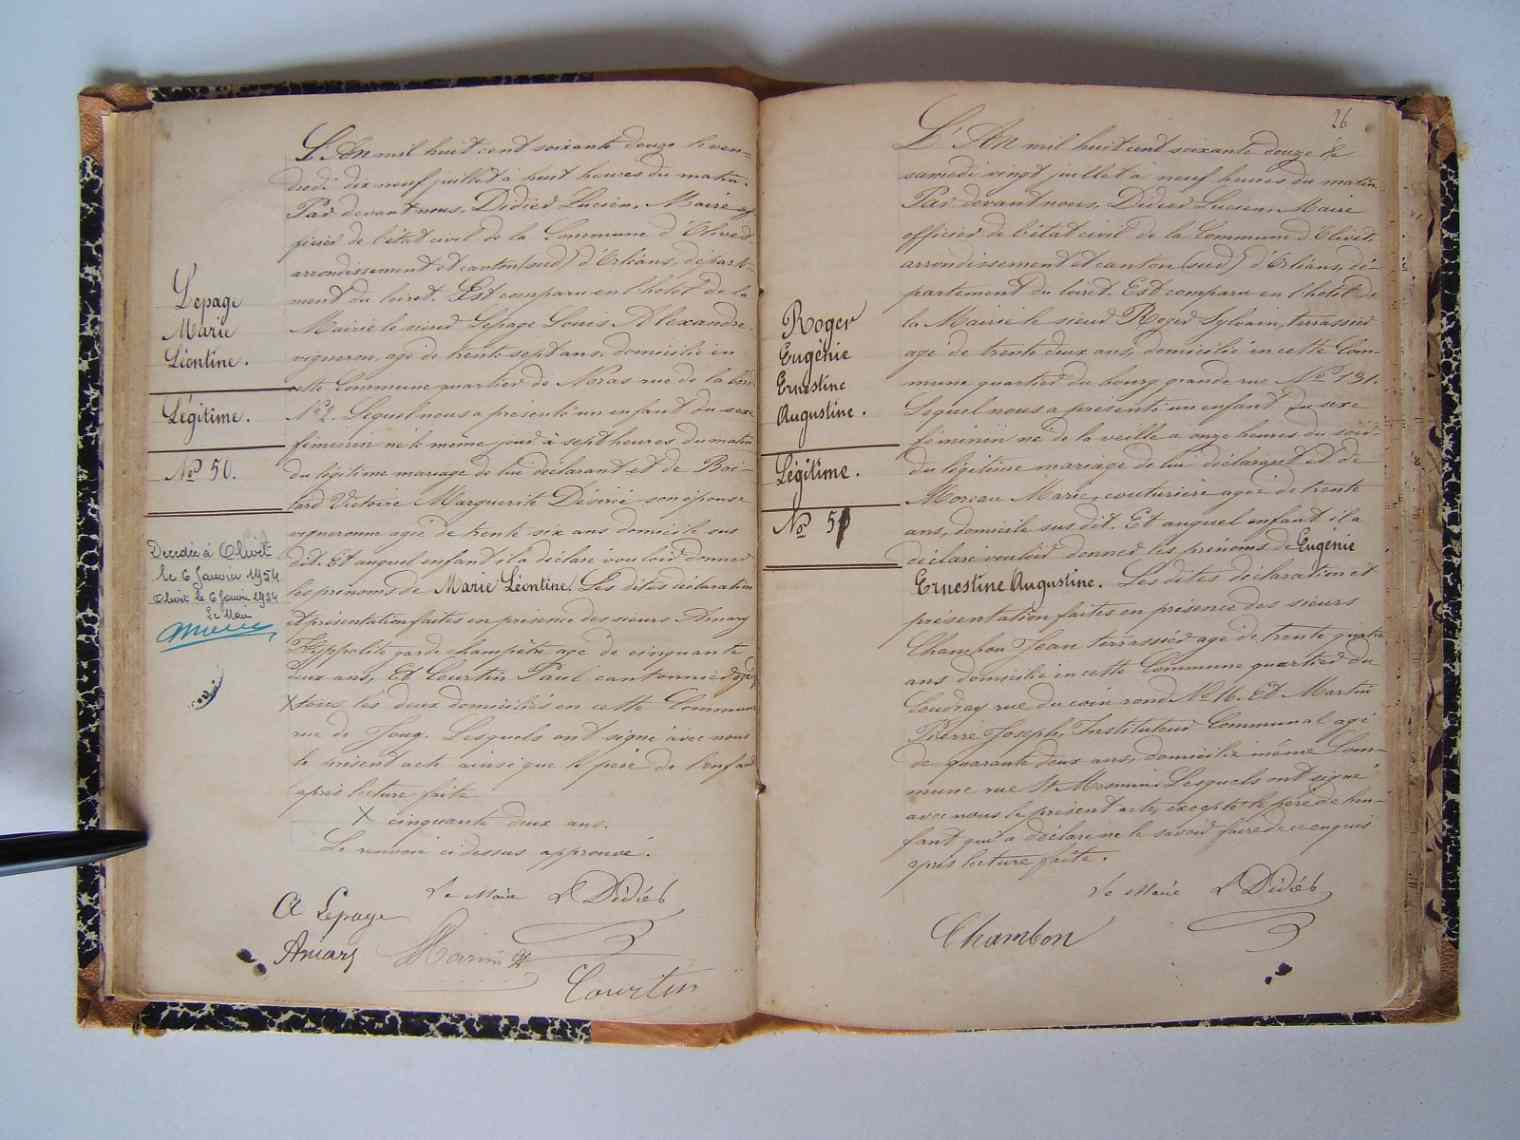 L'An mil huit cent soixante douze le ven-
dredi dix neuf juillet à huit heures du matin.
Par devant nous, Didier Lucien, Maire of
ficier de l'état civil de la Commune d'Olivet
arrondissement et canton (sud) d'Orléans, départe-
ment du loiret. Est comparu en l'hôtel de la
Mairie le sieur Lepage Louis Alexandre
vigneron, agé de trente sept ans, domicilié en
cette Commune quartier de Noras rue de la
No 2. Lequel nous a présenté un enfant du sexe
féminin né le même jour à sept heures du matin
du légitime mariage de lui déclarant et de
Victoire Marguerite Désirée son épouse
vigneronne agée de trente six ans domicile sus
dit. Et auquel enfant il a déclaré vouloir donner
les prénoms de Marie Léontine. Les dites déclaration
et présentation faites en présence des sieurs Amary
Hippolite garde champêtre agé de cinquante
deux ans, Et Courtin Paul cantonnier agé
X les deux domiciliés en cette Commune
rue de Lesquels ont signé avec nous
le présent acte ainsi que le père de l'enfant
après lecture faite
X cinquante deux ans.
Le renvoi ci dessus approuvé.
Le Maire L Didier
A Lepage
Amary
Courtin
Lepage
Marie
Léontine.
Légitime.
No 50.
Décédée à Olivet
le 6 Janvier 1954
Olivet le 6 Janvier 1954
Le Maire
26
L'An mil huit cent soixante douze le
samedi vingt juillet à neuf heures du matin
Par devant nous, Didier Lucien Maire
officier de l'état civil de la Commune d'Olivet,
arrondissement et canton (sud) d'Orléans, dé-
partement du loiret. Est comparu en l'hôtel de
la Mairie le sieur Roger Sylvain, terrassier
agé de trente deux ans, domicilié en cette Com-
mune quartier du bourg grande rue No 131.
Lequel nous a présenté un enfant du sexe
féminin né de la veille a onze heures du soir
du légitime mariage de lui déclarant et de
Moreau Marie, couturière agée de trente
ans, domicile sus dit. Et auquel enfant il a
déclaré vouloir donner les prénoms de Eugénie
Ernestine Augustine. Les dites déclaration et
présentation faites en présence des sieurs
Chambon Jean terrassier agé de trente quatre
ans domicilié en cette Commune quartier du
Coudray rue du coin rond No 16. Et Martin
Pierre Joseph, Instituteur Communal agé
de quarante deux ans, domicilié même Com-
mune rue St Mesmin Lesquels ont signé
avec nous le présent acte, excepté le père de l'en-
fant qui a déclaré ne le savoir faire de ce enquis
après lecture faite.
Le Maire L Didier
Chambon
Roger
Eugénie
Ernestine
Augustine.
Légitime.
No 51